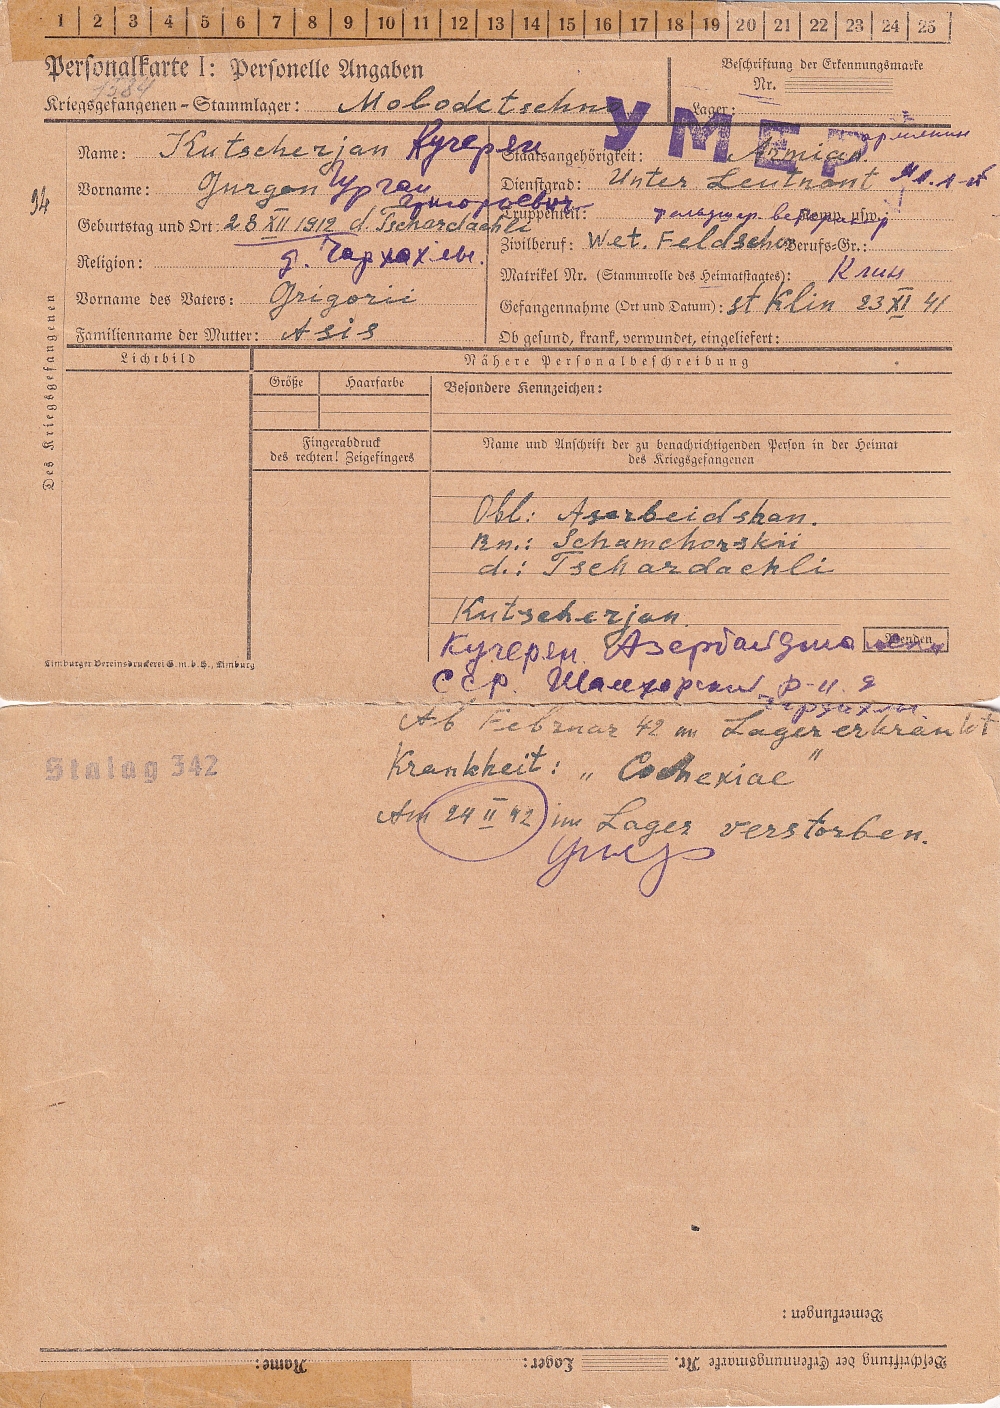 1 2 3 4 5 6 7 8 9 10 11 12 13 14 15 16 17 18 19 20 21 22 23 24 25
Personalkarte I: Personelle Angaben
Beschriftung der Erkennungsmarke
Nr.
1584
Kriegsgefangenen-Stammlager: Molodetschno
Lager:
УМЕР
Name: Kutscherjan Кучерян
Staatsangehörigkeit: Armian армянин
Vorname: Gurgen Гурген Григорьевич
Dienstgrad: Unter Leutnant мл. л-т
94
Truppenteil: Komp. usw.:
фельдшер ветеринар
Geburtstag und Ort: 28 XII 1912 d. Tschardachli
Zivilberuf: Wet. Feldscher Berufs-Gr.:
Religion:
д. Чардахлы.
Matrikel Nr. (Stammrolle des Heimatstaates): Клин
Vorname des Vaters: Grigorii
Gefangennahme (Ort und Datum): st Klin 23 XI 41
Familienname der Mutter: Asis
Ob gesund, krank, verwundet, eingeliefert:
Des Kriegsgefangenen
Lichtbild
Nähere Personalbeschreibung
Größe Haarfarbe
Besondere Kennzeichen:
Fingerabdruck
des rechten! Zeigefingers
Name und Anschrift der zu benachrichtigenden Person in der Heimat
des Kriegsgefangenen
Obl: Aserbeidshan.
Rn.: Schamchorskii
d.: Tschardachli
Kutscherjan
Wenden
Кучерян Азербайджанская
ССР. Шамхорский р-н д
Чардахлы.
Limburger Vereinsdruckerei G.m.b.H., Limburg
Ab Februar 42 im Lager erkrankt
Stalag 342
Krankheit: „Cachexiae"
Am 24 II 42 im Lager verstorben.
умер
Bemerkungen:
Beschriftung der Erkennungsmarke Nr. Lager: Name: